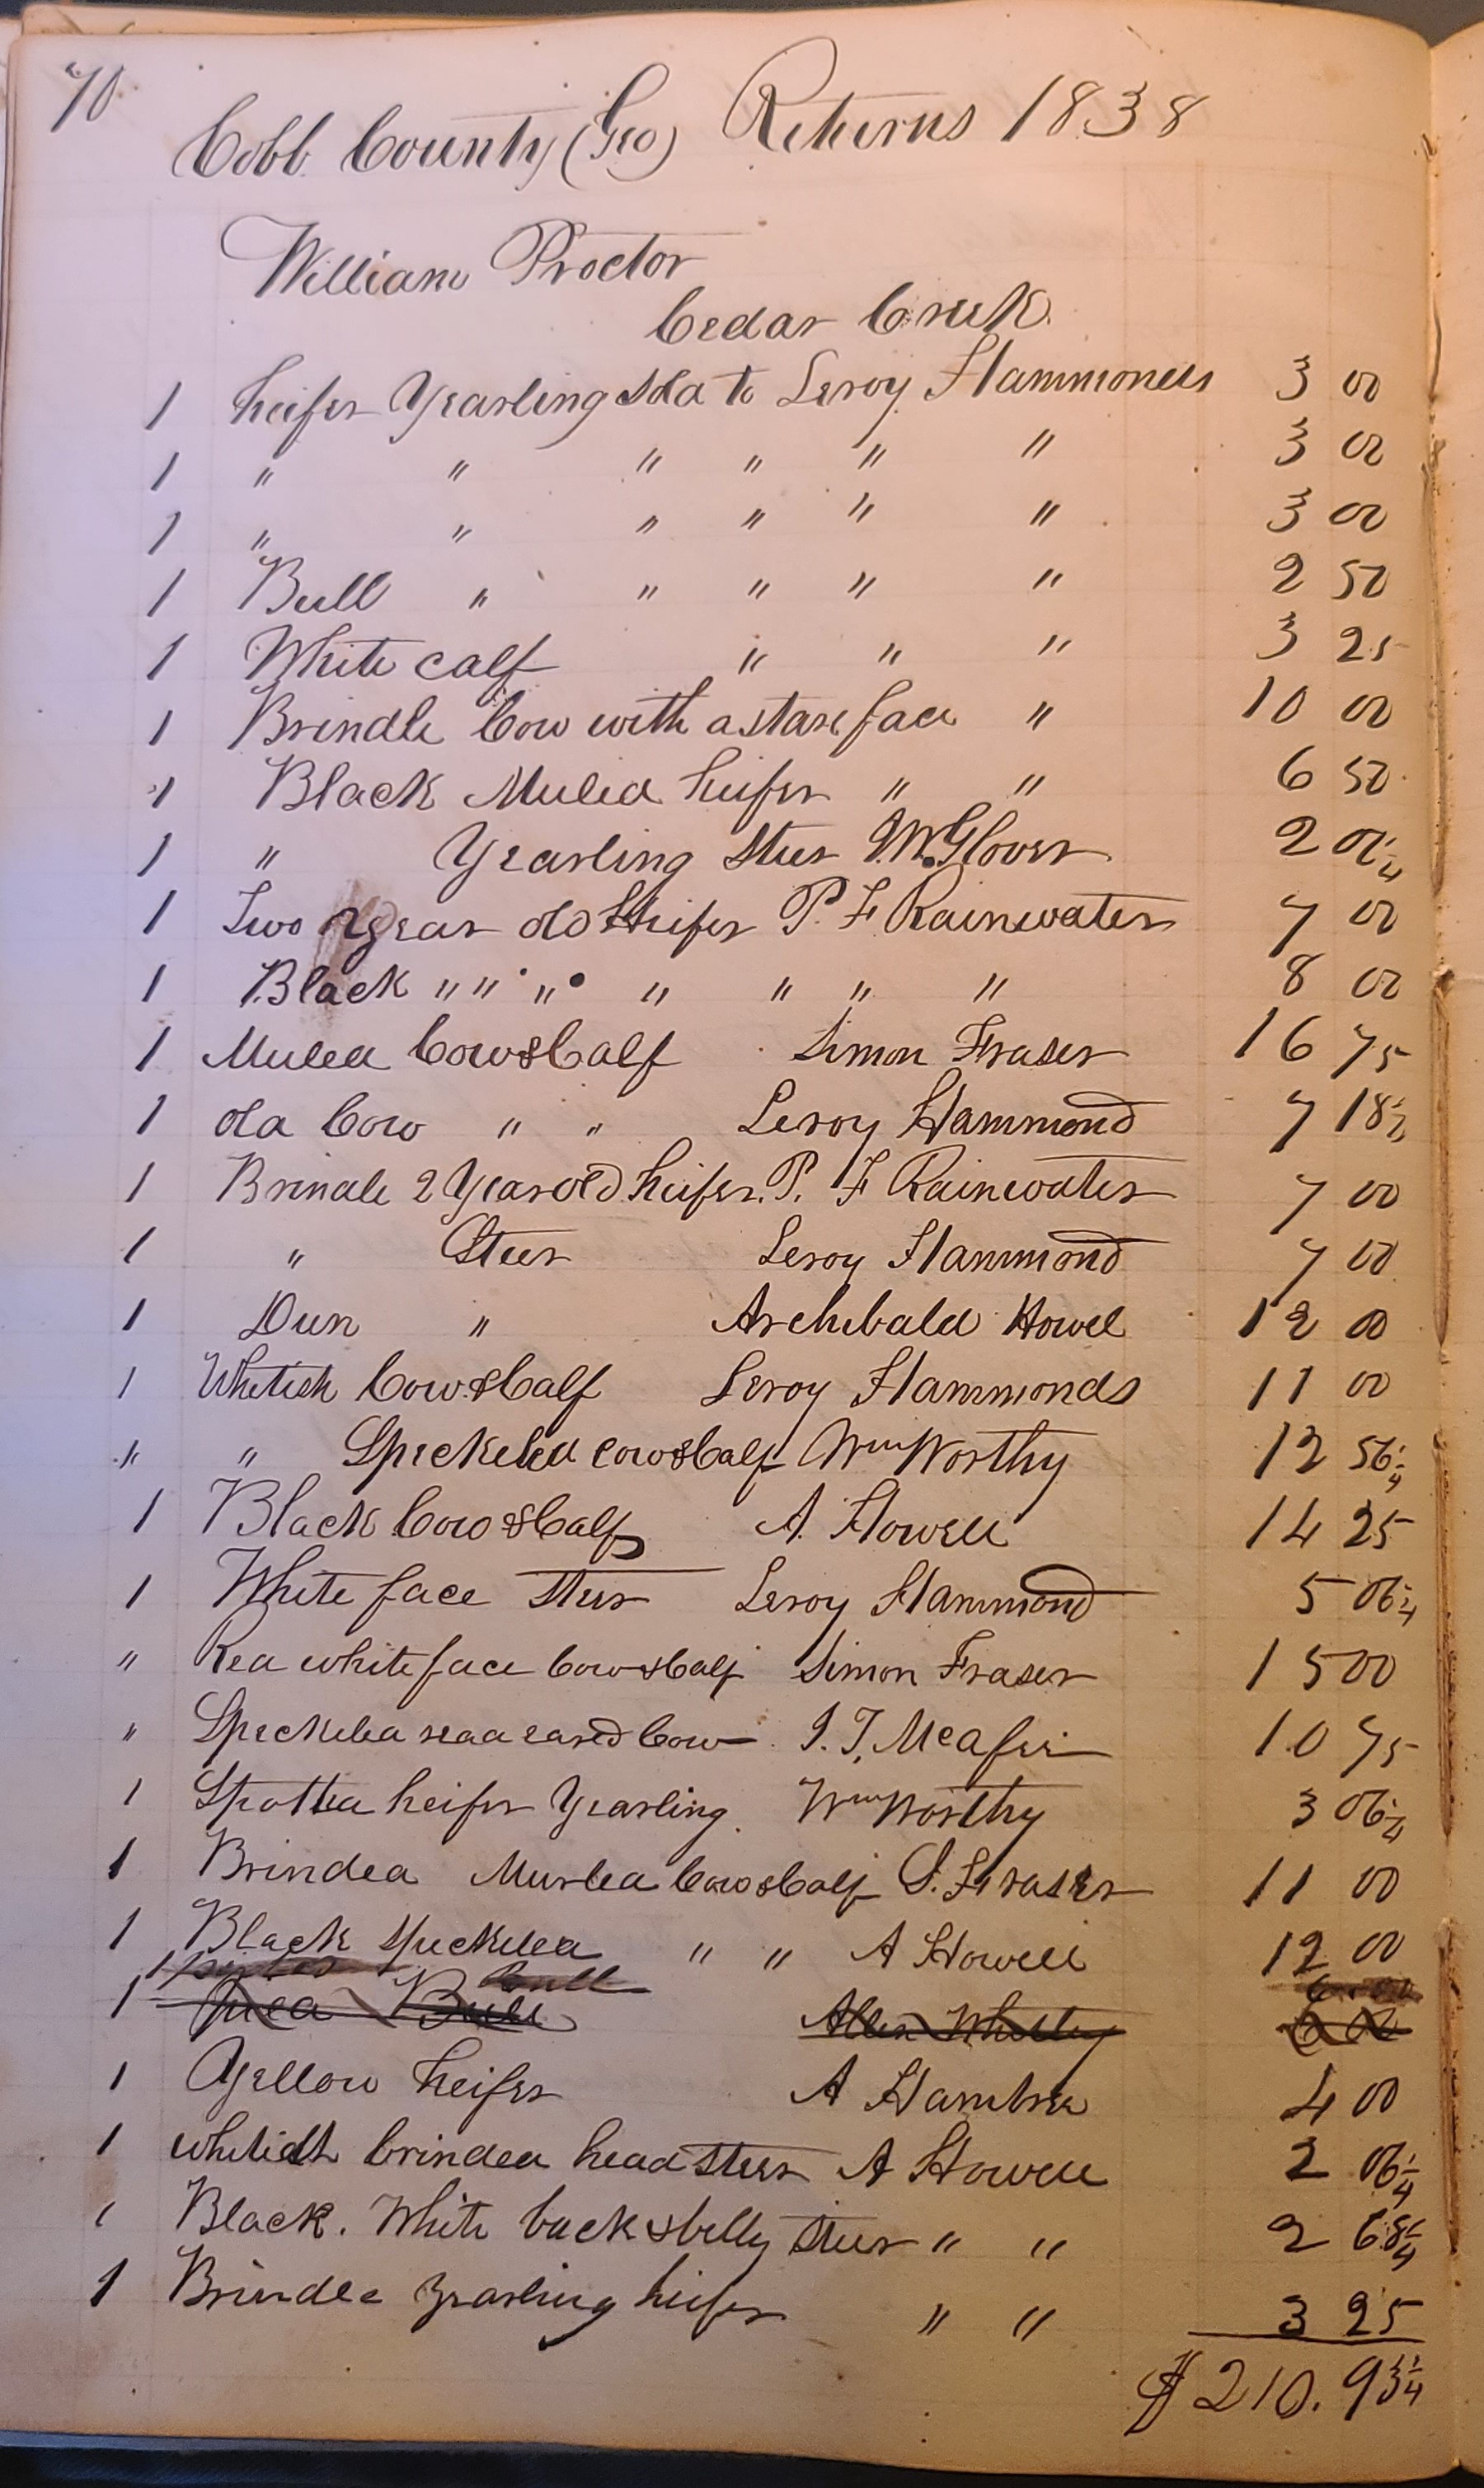 70
Cobb County (Geo) Returns 1838
William Proctor
Cedar Creek
1 heifer Yearling Sold to Leroy Hammonds 3 00
1 " " " " " " 3 00
1 " " " " " " 3 00
1 Bull " " " " " 2 50
1 White calf " " " 3 25
1 Brindle Cow with a stare face " 10 00
1 Black Muled heifer " " 6 50
1 " Yearling Steer J.W. Glover 2 06¼
1 Two year old Heifer P. F Rainwater 7 00
1 Black " " " " " " " 8 00
1 Muled Cow & Calf Simon Fraser 16 75
1 old Cow " " Leroy Hammond 7 18½
1 Brindle 2 Year old heifer. P. F Rainwater 7 00
1 " Steer Leroy Hammond 7 00
1 Dun " Archibald Howel 12 00
1 Whitish Cow & Calf Leroy Hammonds 11 00
" " Speckeled cow & Calf Wm Worthy 12 56¼
1 Black Cow & Calf A. Howell 14 25
1 White face Steer Leroy Hammond 5 06¼
" Red white face Cow & Calf Simon Fraser 15 00
" Speckeled eared Cow J. T. McAfee 10 75
1 Spotted heifer Yearling. Wm Worthy 3 06¼
1 Brinded Murled Cow & Calf S. Fraser 11 00
1 Black Speckled " " A Howell 12 00
bull
1 Bull Allen
1 Yellow heifer A Hambree 4 00
1 whitish brinded head Steer A Howell 2 06¼
1 Black. White back & belly Steer " " 2 68¼
1 Brindle yearling heifer " " 3 25
$ 210. 93¼